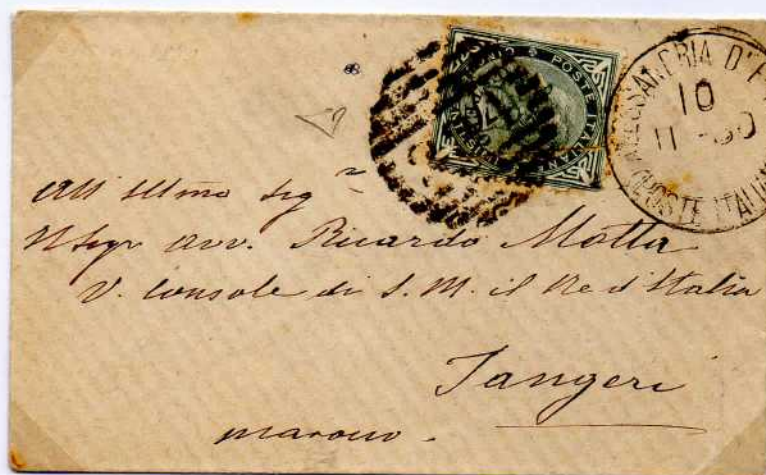 POSTE ITALIANE
ALESSANDRIA D'E
10
11 90
POSTE ITALIAN
All' Illmo Sigr
Il Sigr Avv. Ricardo Motta
V. Console di S. M. il Re d'Italia
Tangeri
Marocco.